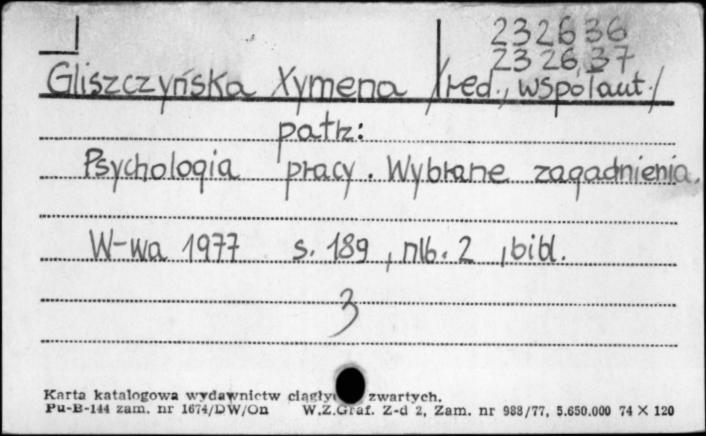 232636
232637
Gliszczyńska Xymena /red., współaut./
patrz:
Psychologia pracy. Wybrane zagadnienia.
W-wa 1977 s. 189, nlb. 2, bibl.
3
Karta katalogowa wydawnictw zwartych.
Pu-B-144 zam. nr 1674/DW/On W.Z.Graf. Z-d 2, Zam. nr 988/77, 5.650.000 74 × 120